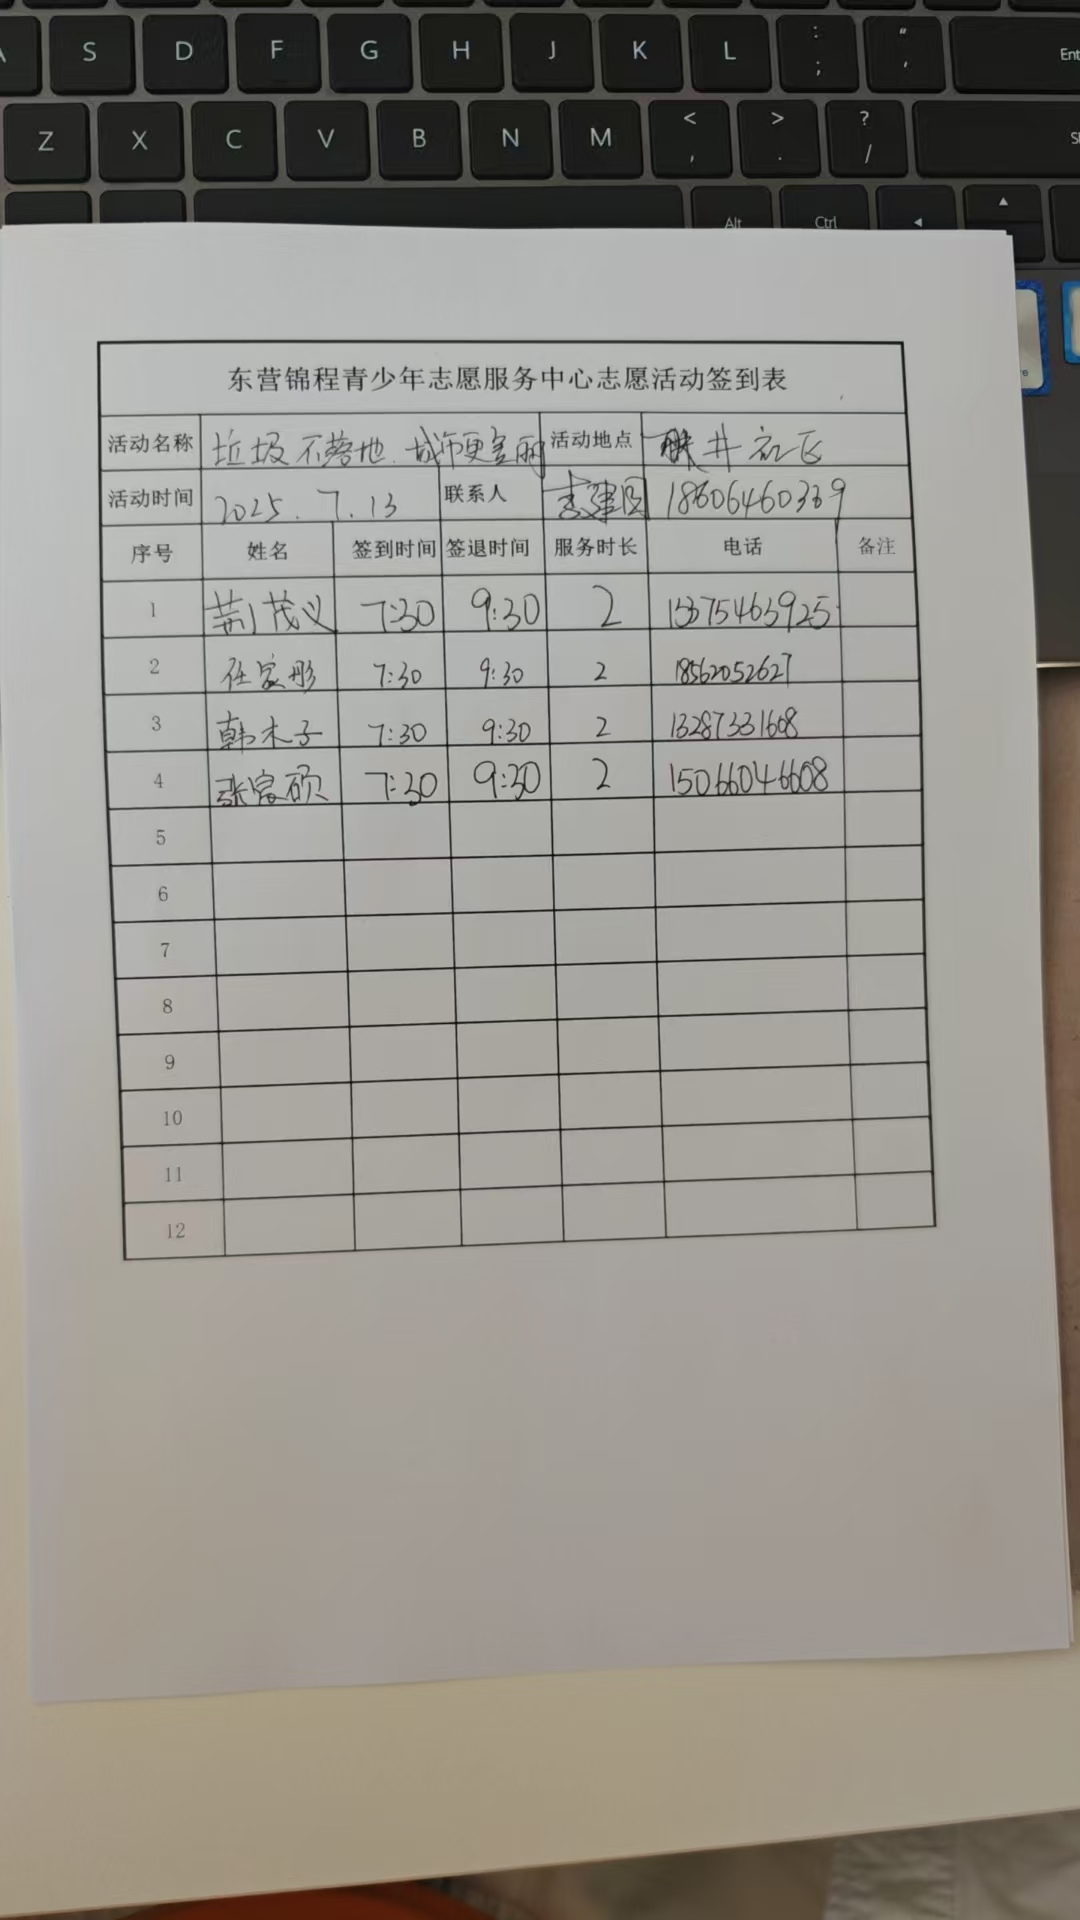 A S D F G H J K L : ; " ' Ent
Z X C V B N M < , > . ? / Sh
Alt Ctrl ◄ ▲
东营锦程青少年志愿服务中心志愿活动签到表
活动名称 垃圾不落地.城市更美丽 活动地点 胜井社区
活动时间 2025.7.13 联系人 李建国 18606460339
序号 姓名 签到时间 签退时间 服务时长 电话 备注
1 荆茂义 7:30 9:30 2 15375463925
2 任家彤 7:30 9:30 2 18562052627
3 韩木子 7:30 9:30 2 13287331608
4 张家硕 7:30 9:30 2 15066046608
5
6
7
8
9
10
11
12